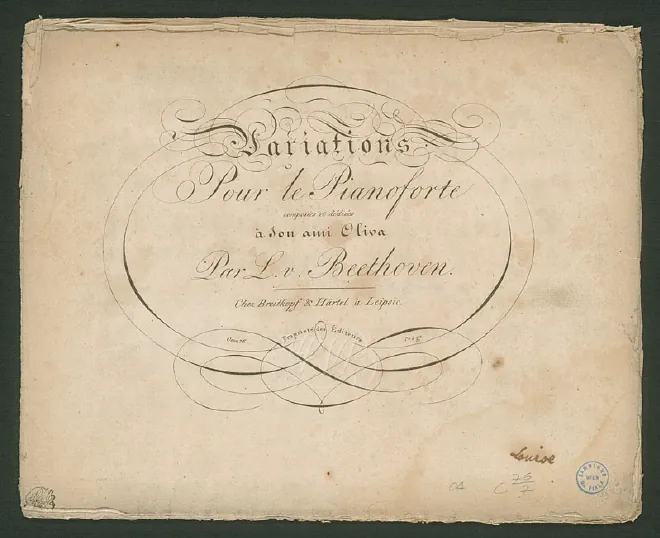 Variations
Pour le Pianoforte
composées et dédiées
à son ami Oliva
Par L. v. Beethoven.
Chez Breitkopf & Härtel à Leipsic.
Propriété des Editeurs.
Oeuv. 76
Louise
C 76/7